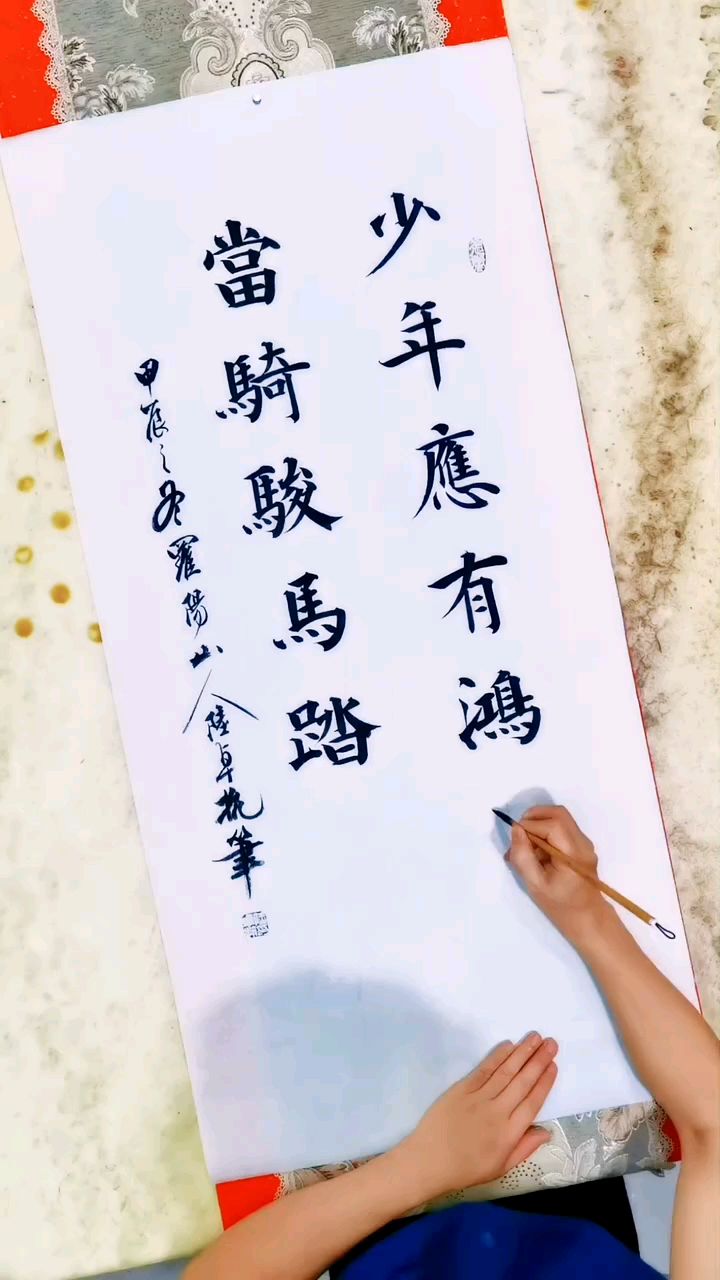 少年應有鴻
當騎駿馬踏
甲辰之冬羅陽山人陸卓執筆